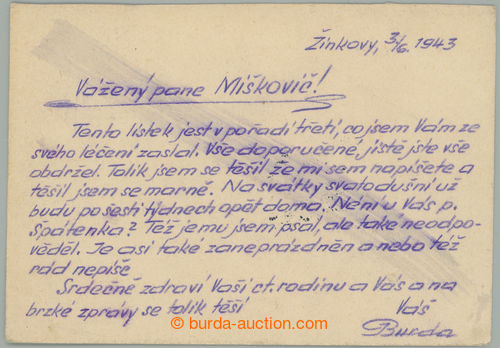 Žinkovy, 3/6. 1943
Vážený pane Miškovič!
Tento lístek jest v pořadí třetí, co jsem Vám ze
svého léčení zaslal. Vše doporučené, jistě jste vše
obdržel. Tolik jsem se těšil že mi sem napíšete a
těšil jsem se marně. Na svátky svatodušní už
budu po šesti týdnech opět doma. Není u Vás p.
Špátenka? Též jemu jsem psal, ale také neodpo-
věděl. Je asi také zaneprázdněn a nebo též
rád nepíše
Srdečně zdraví Vaši ct. rodinu a Vás a na
brzké zprávy se tolik těší
Váš
Burda
© burda-auction.com